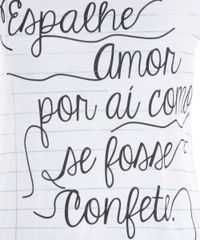 Espalhe
Amor
por aí como
se fosse
confete.